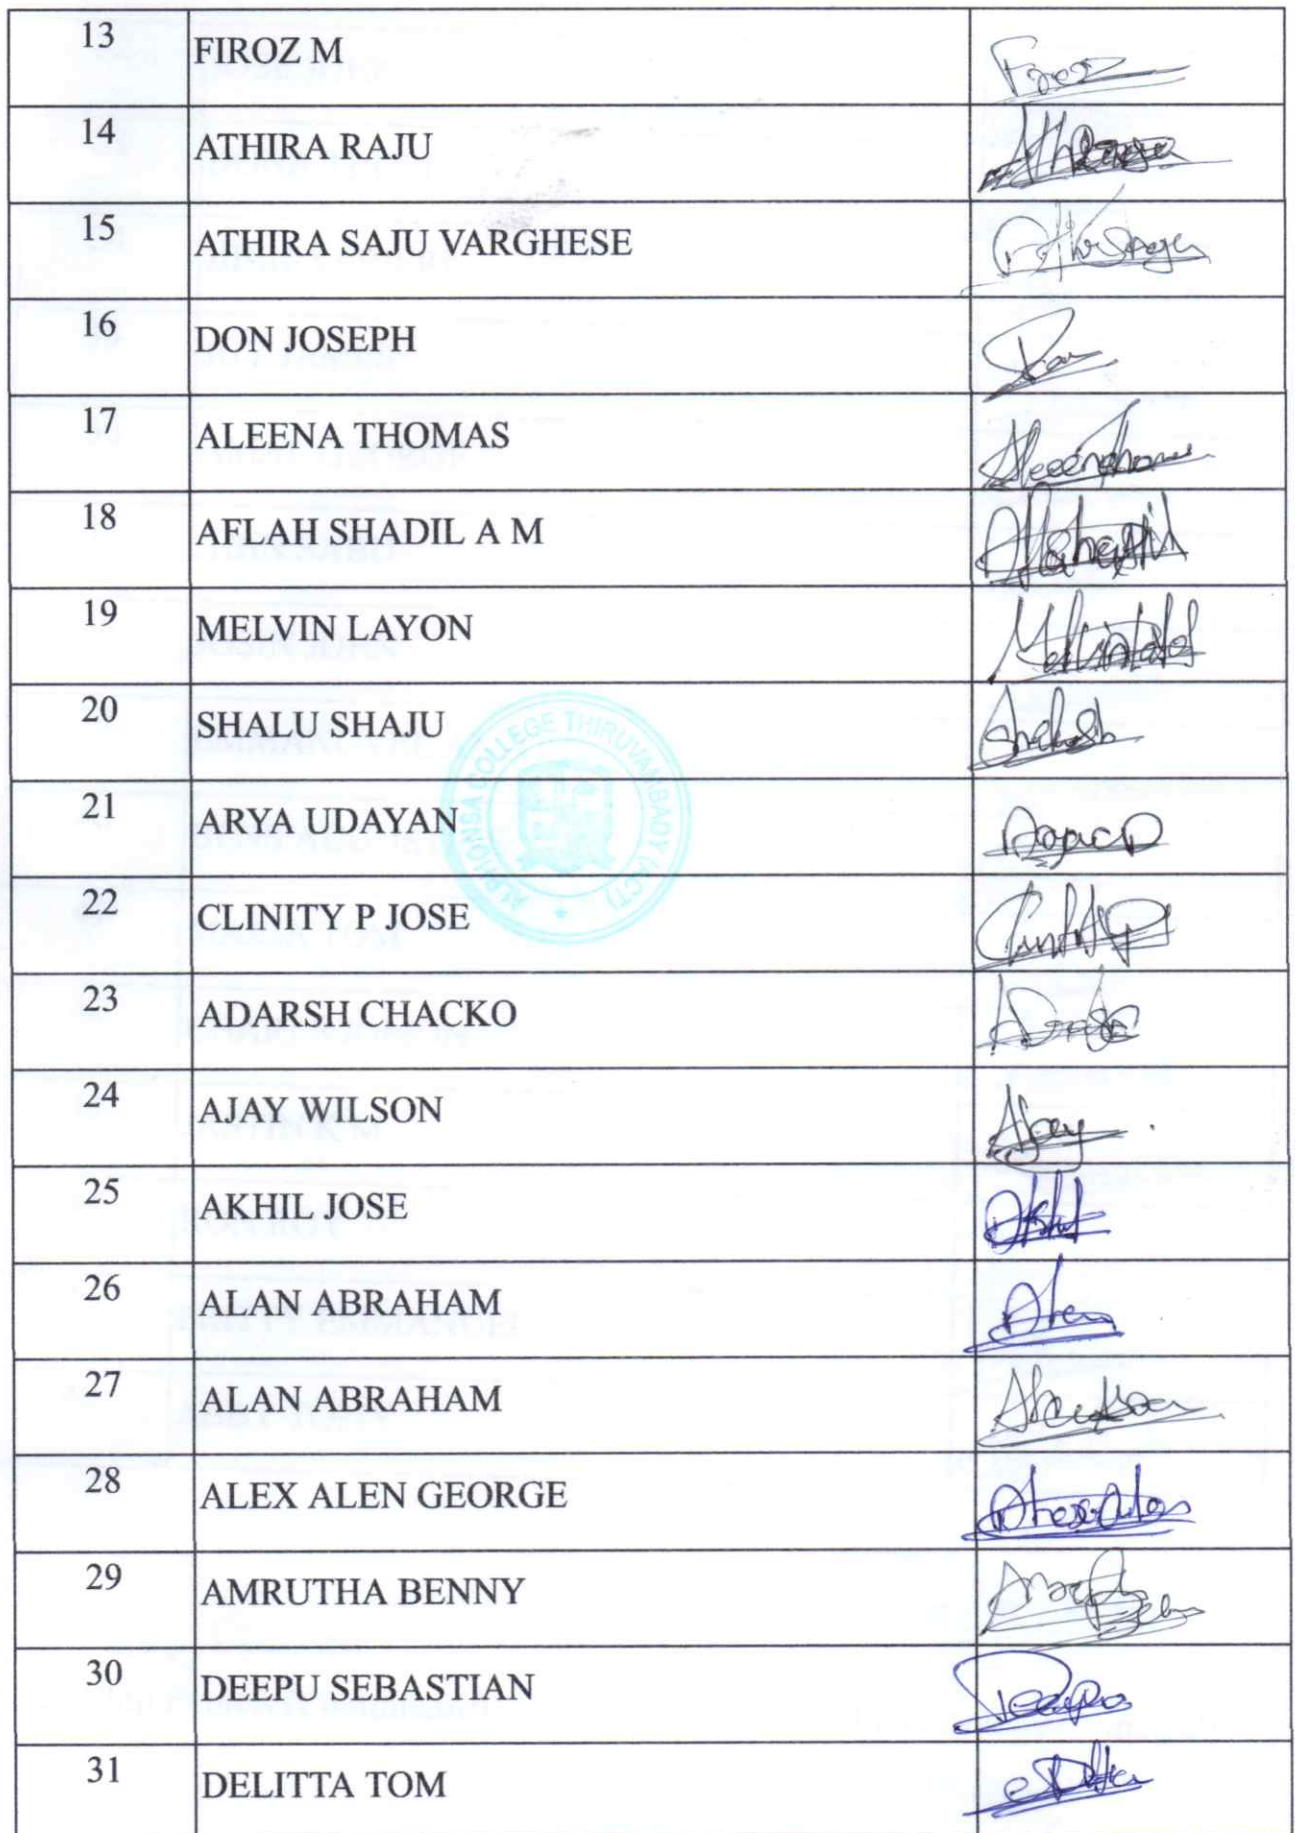 13 FIROZ M Firoz
14 ATHIRA RAJU
15 ATHIRA SAJU VARGHESE
16 DON JOSEPH Don
17 ALEENA THOMAS
18 AFLAH SHADIL A M
19 MELVIN LAYON
20 SHALU SHAJU
ALPHONSA COLLEGE THIRUVAMBADY (KCT)
21 ARYA UDAYAN
22 CLINITY P JOSE
23 ADARSH CHACKO
24 AJAY WILSON Ajay
25 AKHIL JOSE Akhil
26 ALAN ABRAHAM Alan
27 ALAN ABRAHAM
28 ALEX ALEN GEORGE
29 AMRUTHA BENNY
30 DEEPU SEBASTIAN Deepu
31 DELITTA TOM